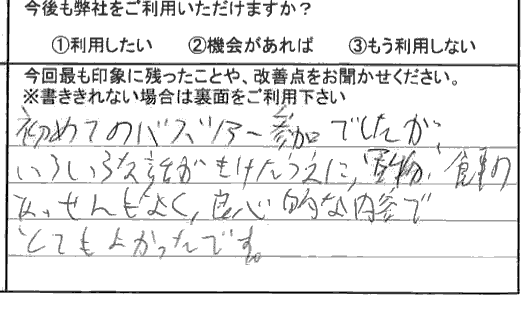 今後も弊社をご利用いただけますか?
①利用したい ②機会があれば ③もう利用しない
今回最も印象に残ったことや、改善点をお聞かせください。
※書ききれない場合は裏面をご利用下さい
初めてのバスツアー参加でしたが、
いろいろな話がきけたうえに、買物、食事の
よく、良心的な内容で
とてもよかったです。